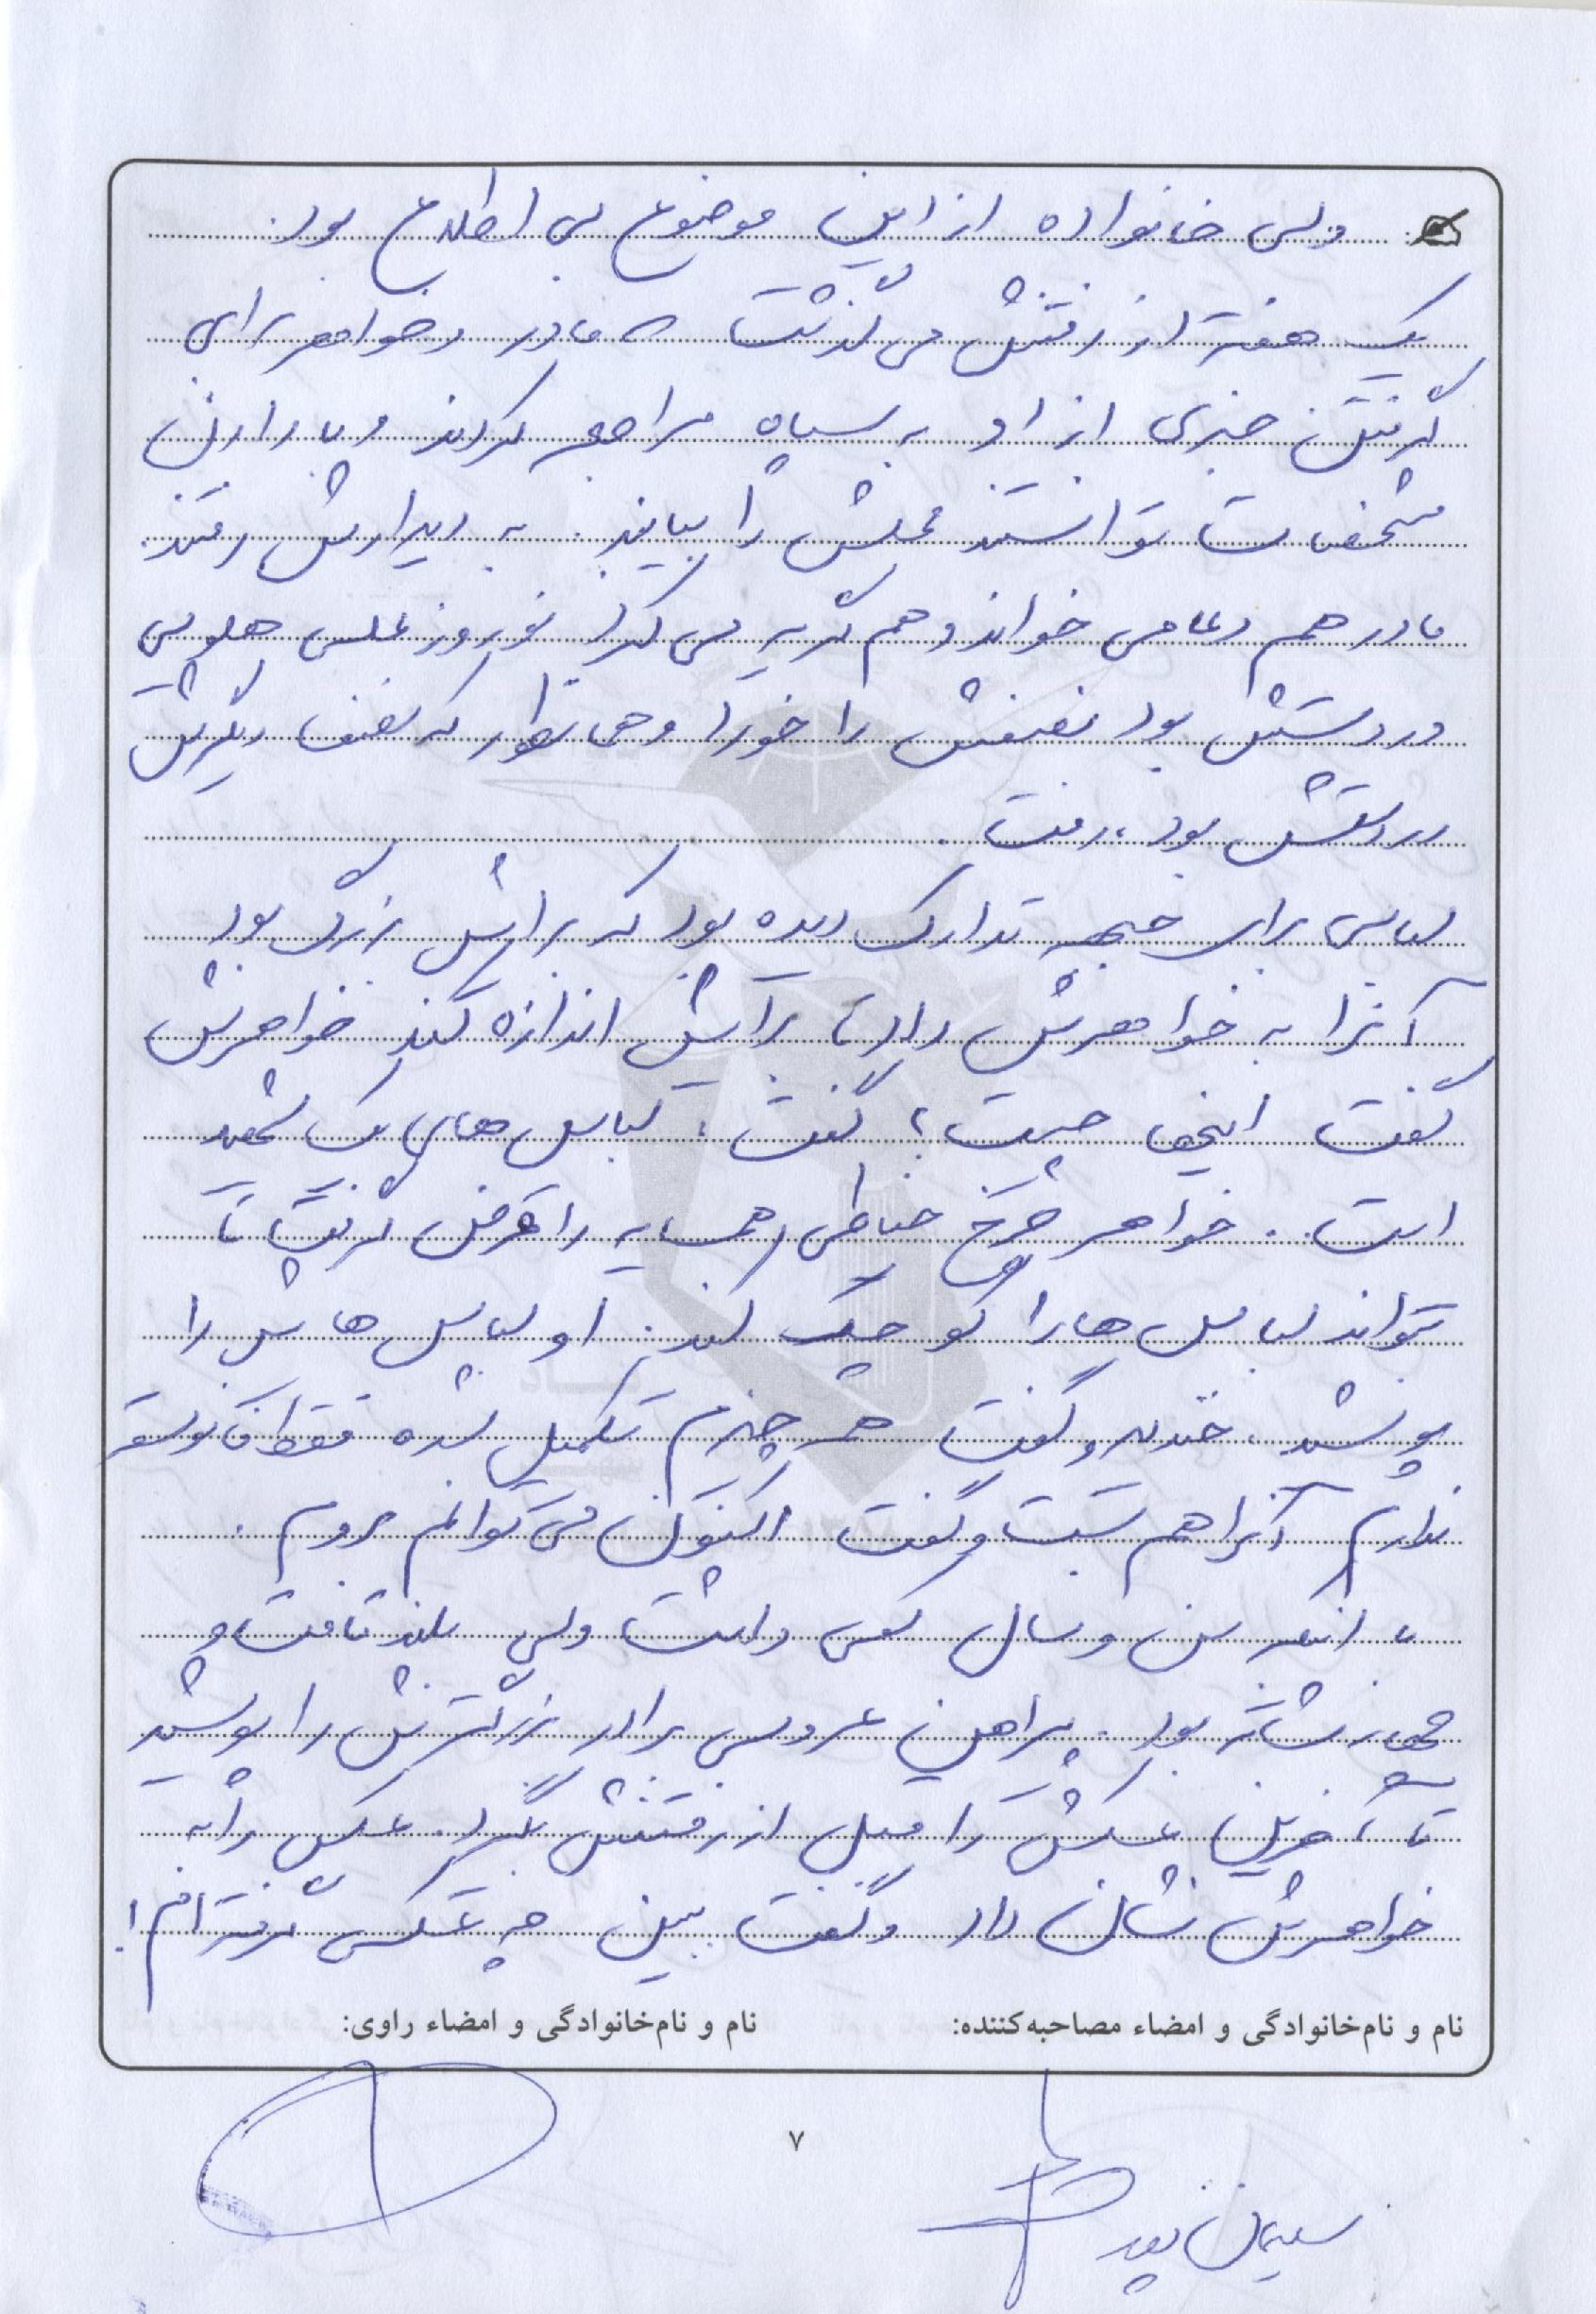 ولی خانواده از این موضوع بی اطلاع بود.
یک هفته از رفتنش می گذشت که مادر و خواهر برای
گرفتن خبری از او به سپاه مراجعه کردند و با دادن
مشخصات توانستند محلش را بیابند. به دیدارش رفتند.
مادر هم دعا می خواند و هم گریه می کرد. نوروز علی هلویی
در دستش بود نصفش را خورد و همانطور که نصف دیگرش
در دستش بود، رفت.
لباسی برای جبهه تدارک دیده بود که برایش بزرگ بود
آنرا به خواهرش داد تا برایش اندازه کند خواهرش
گفت اینها چیست؟ گفت: لباس های یک شهید
است. خواهر چرخ خیاطی همسایه را قرض گرفت تا
بتواند لباس ها را کوچک کند. او لباس هایش را
پوشید، خندید و گفت همه چیزم تکمیل شده فقط فانوسقه
ندارم آنرا هم بست و گفت اکنون می توانم بروم.
با اینکه سن و سال کمی داشت ولی بلند قامت و
چهارشانه بود. پیراهن عروسی برادر بزرگترش را پوشید
تا آخرین عکسش را قبل از رفتنش بگیرد. عکس را به
خواهرش نشان داد و گفت ببین چه عکسی گرفته ام!
نام و نام‌خانوادگی و امضاء مصاحبه‌کننده: نام و نام‌خانوادگی و امضاء راوی:
۷
سلیمان پور